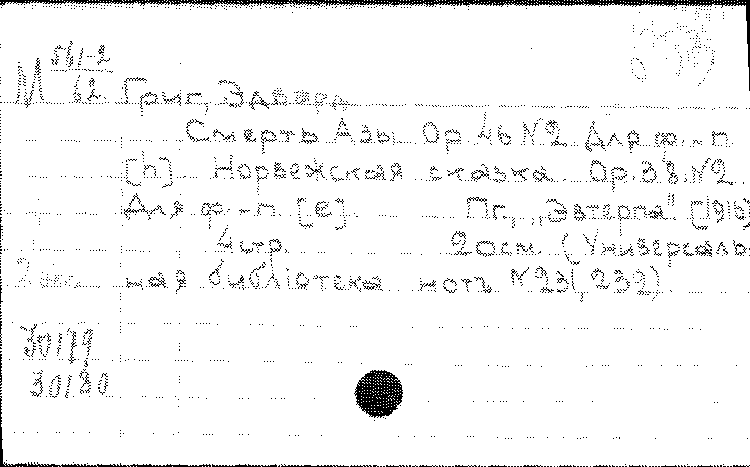 М 561-2/62 Григ, Эдвард
Смерть Азы Ор 46 №2 Для ф.-п
[h] Норвежская сказка Ор.38.№2
Для ф-п. [e]. Пг., „Эвтерпа" [1916]
4стр. 20см (Универсаль-
2 экз. ная библіотека нотъ №231, 232)
30179
30180